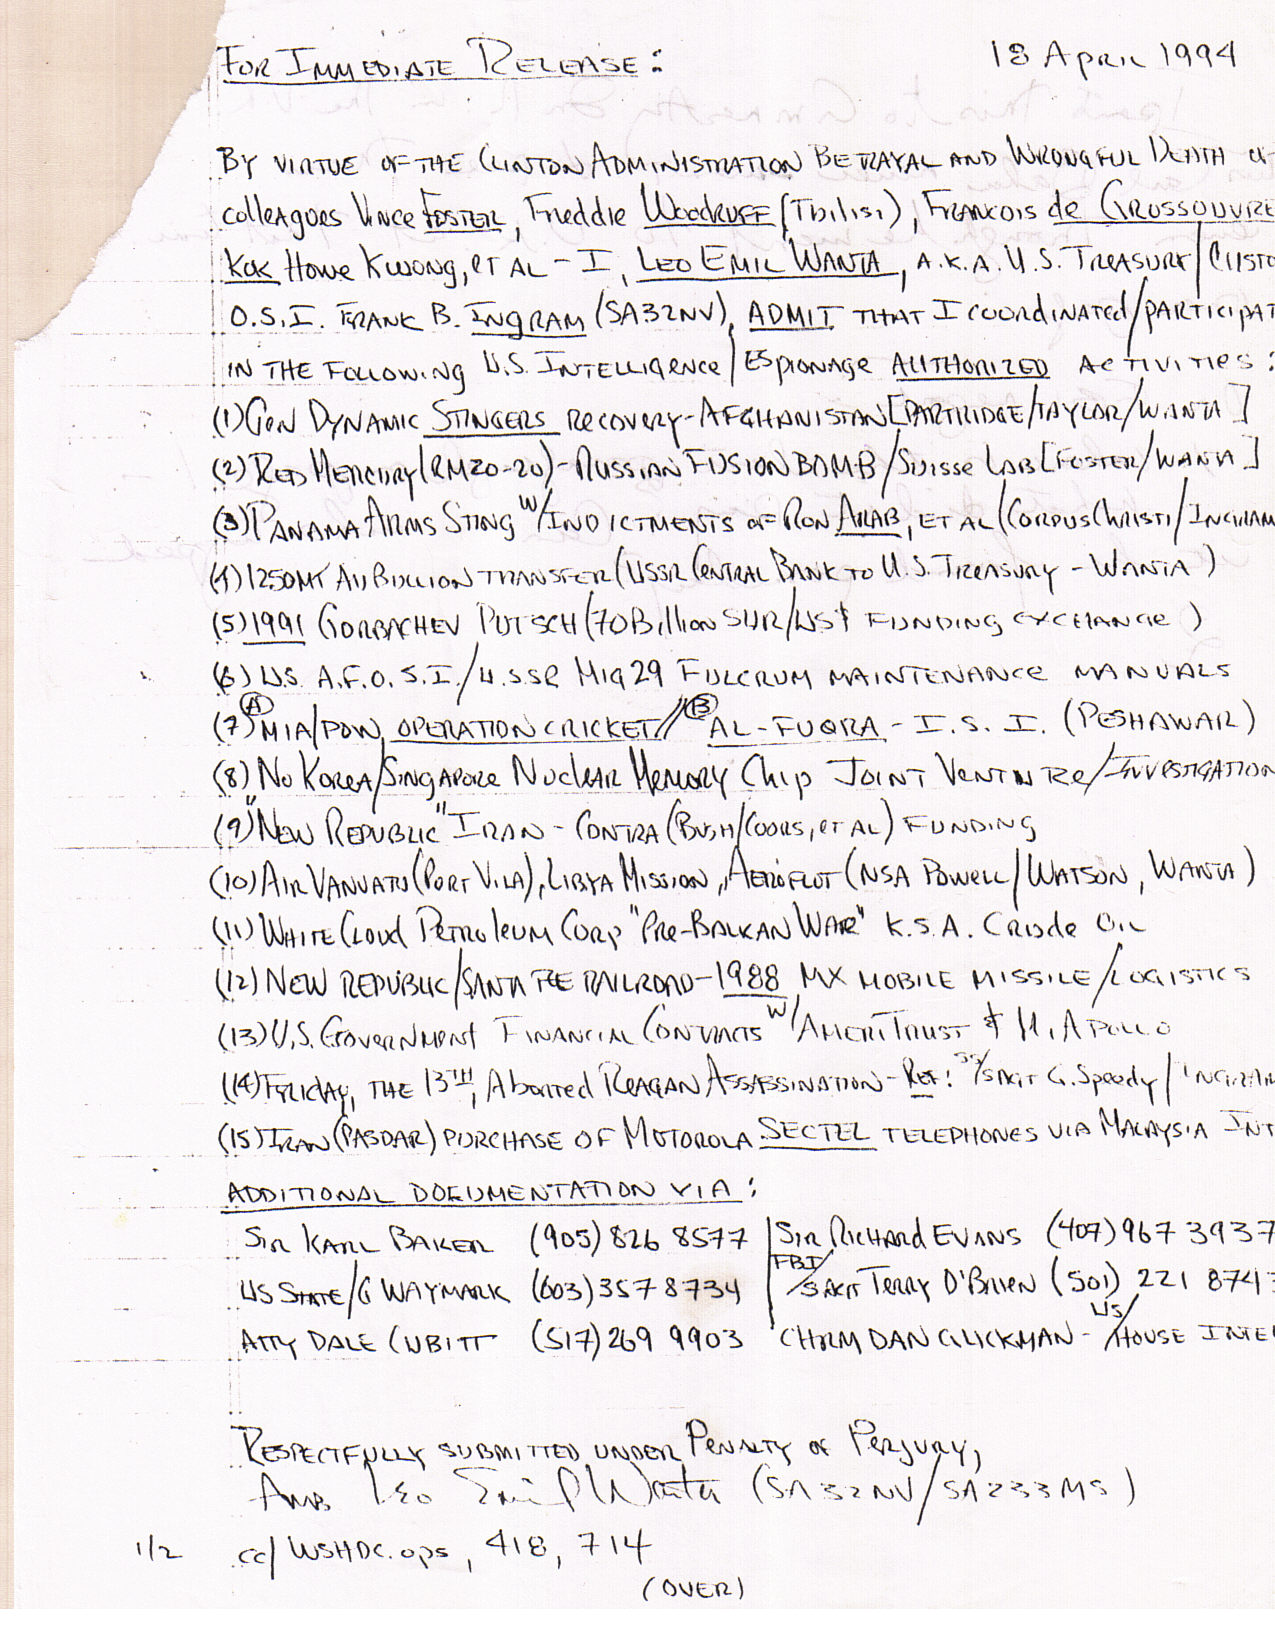 FOR IMMEDIATE RELEASE: 18 APRIL 1994
BY VIRTUE OF THE CLINTON ADMINISTRATION BETRAYAL AND WRONGFUL DEATH OF
colleagues Vince FOSTER, Freddie WOODRUFF (Tbilisi), FRANCOIS de GROSSOUVRE
Kok Howe KWONG, ET AL - I, LEO EMIL WANTA, A.K.A. U.S. TREASURY/CUSTO
O.S.I. FRANK B. INGRAM (SA32NV), ADMIT THAT I COORDINATED/PARTICIPAT
IN THE FOLLOWING U.S. INTELLIGENCE/ESPIONAGE AUTHORIZED ACTIVITIES:
(1) GEN DYNAMIC STINGERS RECOVERY-AFGHANISTAN [PARTRIDGE/TAYLOR/WANTA]
(2) RED MERCURY (RM20-20)-RUSSIAN FUSION BOMB/SUISSE LAB [FOSTER/WANTA]
(3) PANAMA ARMS STING W/INDICTMENTS OF RON ARAB, ET AL (CORPUS CHRISTI/INGRAM
(4) 1250MT AU BULLION TRANSFER (USSR CENTRAL BANK TO U.S. TREASURY - WANTA)
(5) 1991 GORBACHEV PUTSCH (70 Billion SUR/US$ FUNDING EXCHANGE)
(6) US A.F.O.S.I./U.SSR MIG 29 FULCRUM MAINTENANCE MANUALS
(7) (A) MIA/POW OPERATION CRICKET// (B) AL-FUQRA - I.S.I. (PESHAWAR)
(8) NO KOREA/SINGAPORE NUCLEAR MEMORY CHIP JOINT VENTURE/INVESTIGATION
(9) "NEW REPUBLIC" IRAN - CONTRA (BUSH/COORS, ET AL) FUNDING
(10) AIR VANUATU (PORT VILA), LIBYA MISSION, AEROFLOT (NSA POWELL/WATSON, WANTA)
(11) WHITE CLOUD PETROLEUM CORP "PRE-BALKAN WAR" K.S.A. CRUDE OIL
(12) NEW REPUBLIC/SANTA FE RAILROAD-1988 MX MOBILE MISSILE/LOGISTICS
(13) U.S. GOVERNMENT FINANCIAL CONTRACTS W/AMERITRUST & M. APOLLO
(14) FRIDAY, THE 13TH, Aborted REAGAN ASSASSINATION-REF: SS/SAGT G. Speedy/INGRAM
(15) IRAN (PASDAR) PURCHASE OF MOTOROLA SECTEL TELEPHONES VIA MALAYSIA INT
ADDITIONAL DOCUMENTATION VIA:
SIR KARL BAKER (905) 826 8577 | SIR RICHARD EVANS (407) 967 3937
US STATE/G WAYMARK (603) 357 8734 | FBI/SAGT TERRY O'BRIEN (501) 221 874
ATTY DALE CUBITT (517) 269 9903 CHRM DAN GLICKMAN - US/HOUSE INTE
RESPECTFULLY SUBMITTED UNDER PENALTY OF PERJURY,
AMB Leo Emil Wanta (SA32NV/SA233MS)
1/2 cc/ WSHDC.ops, 418, 714
(OVER)